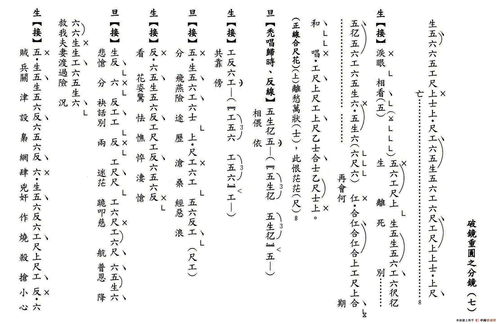 破鏡重圓之分鏡(七)
生五六六五工尺上士士•上•尺工六五生五五六工尺上上士•上尺
亡
生【接】淚眼 相看(五) 五六工尺上 生五生五六工六伬伬
離 死 別
五伬五六工六五生六•五生六(六尺六) 仁•合仁合仁合上工尺上合
再會何 期
和 唱•工尺上尺工上尺乙士合士乙尺士上。
(正線合尺花)(上)離愁萬狀(士),此恨茫茫(尺)
旦【禿唱歸時、反線】五生伬五—(〖五生伬 五生伬〗五—)
相偎 依
生【接】工反六工—(〖工五六 工五六〗工—)
共靠 傍
生【接】反•六五工六五反工反六五六
看 花姿驚 怯 憔 悴 淒愴
旦【接】生五五六工六士 上•尺工六五反工(尺工)
分 飛燕險 途 歷 滄 桑 經惡 浪
旦【接】生反 六 反工反 工 工尺尺 工六尺工六 六五生六
悲愴 分 袂話別 兩 迷茫 跪叩慈 航普恩 降
六六生生工六五生六
救我夫妻渡過險 況
生【接】五•生五六工五生五六反 六•生五六反六工尺上尺工 反•六
賊兵關 津 設 梟 網肆兇奸 作 燒 殺 搶 小心